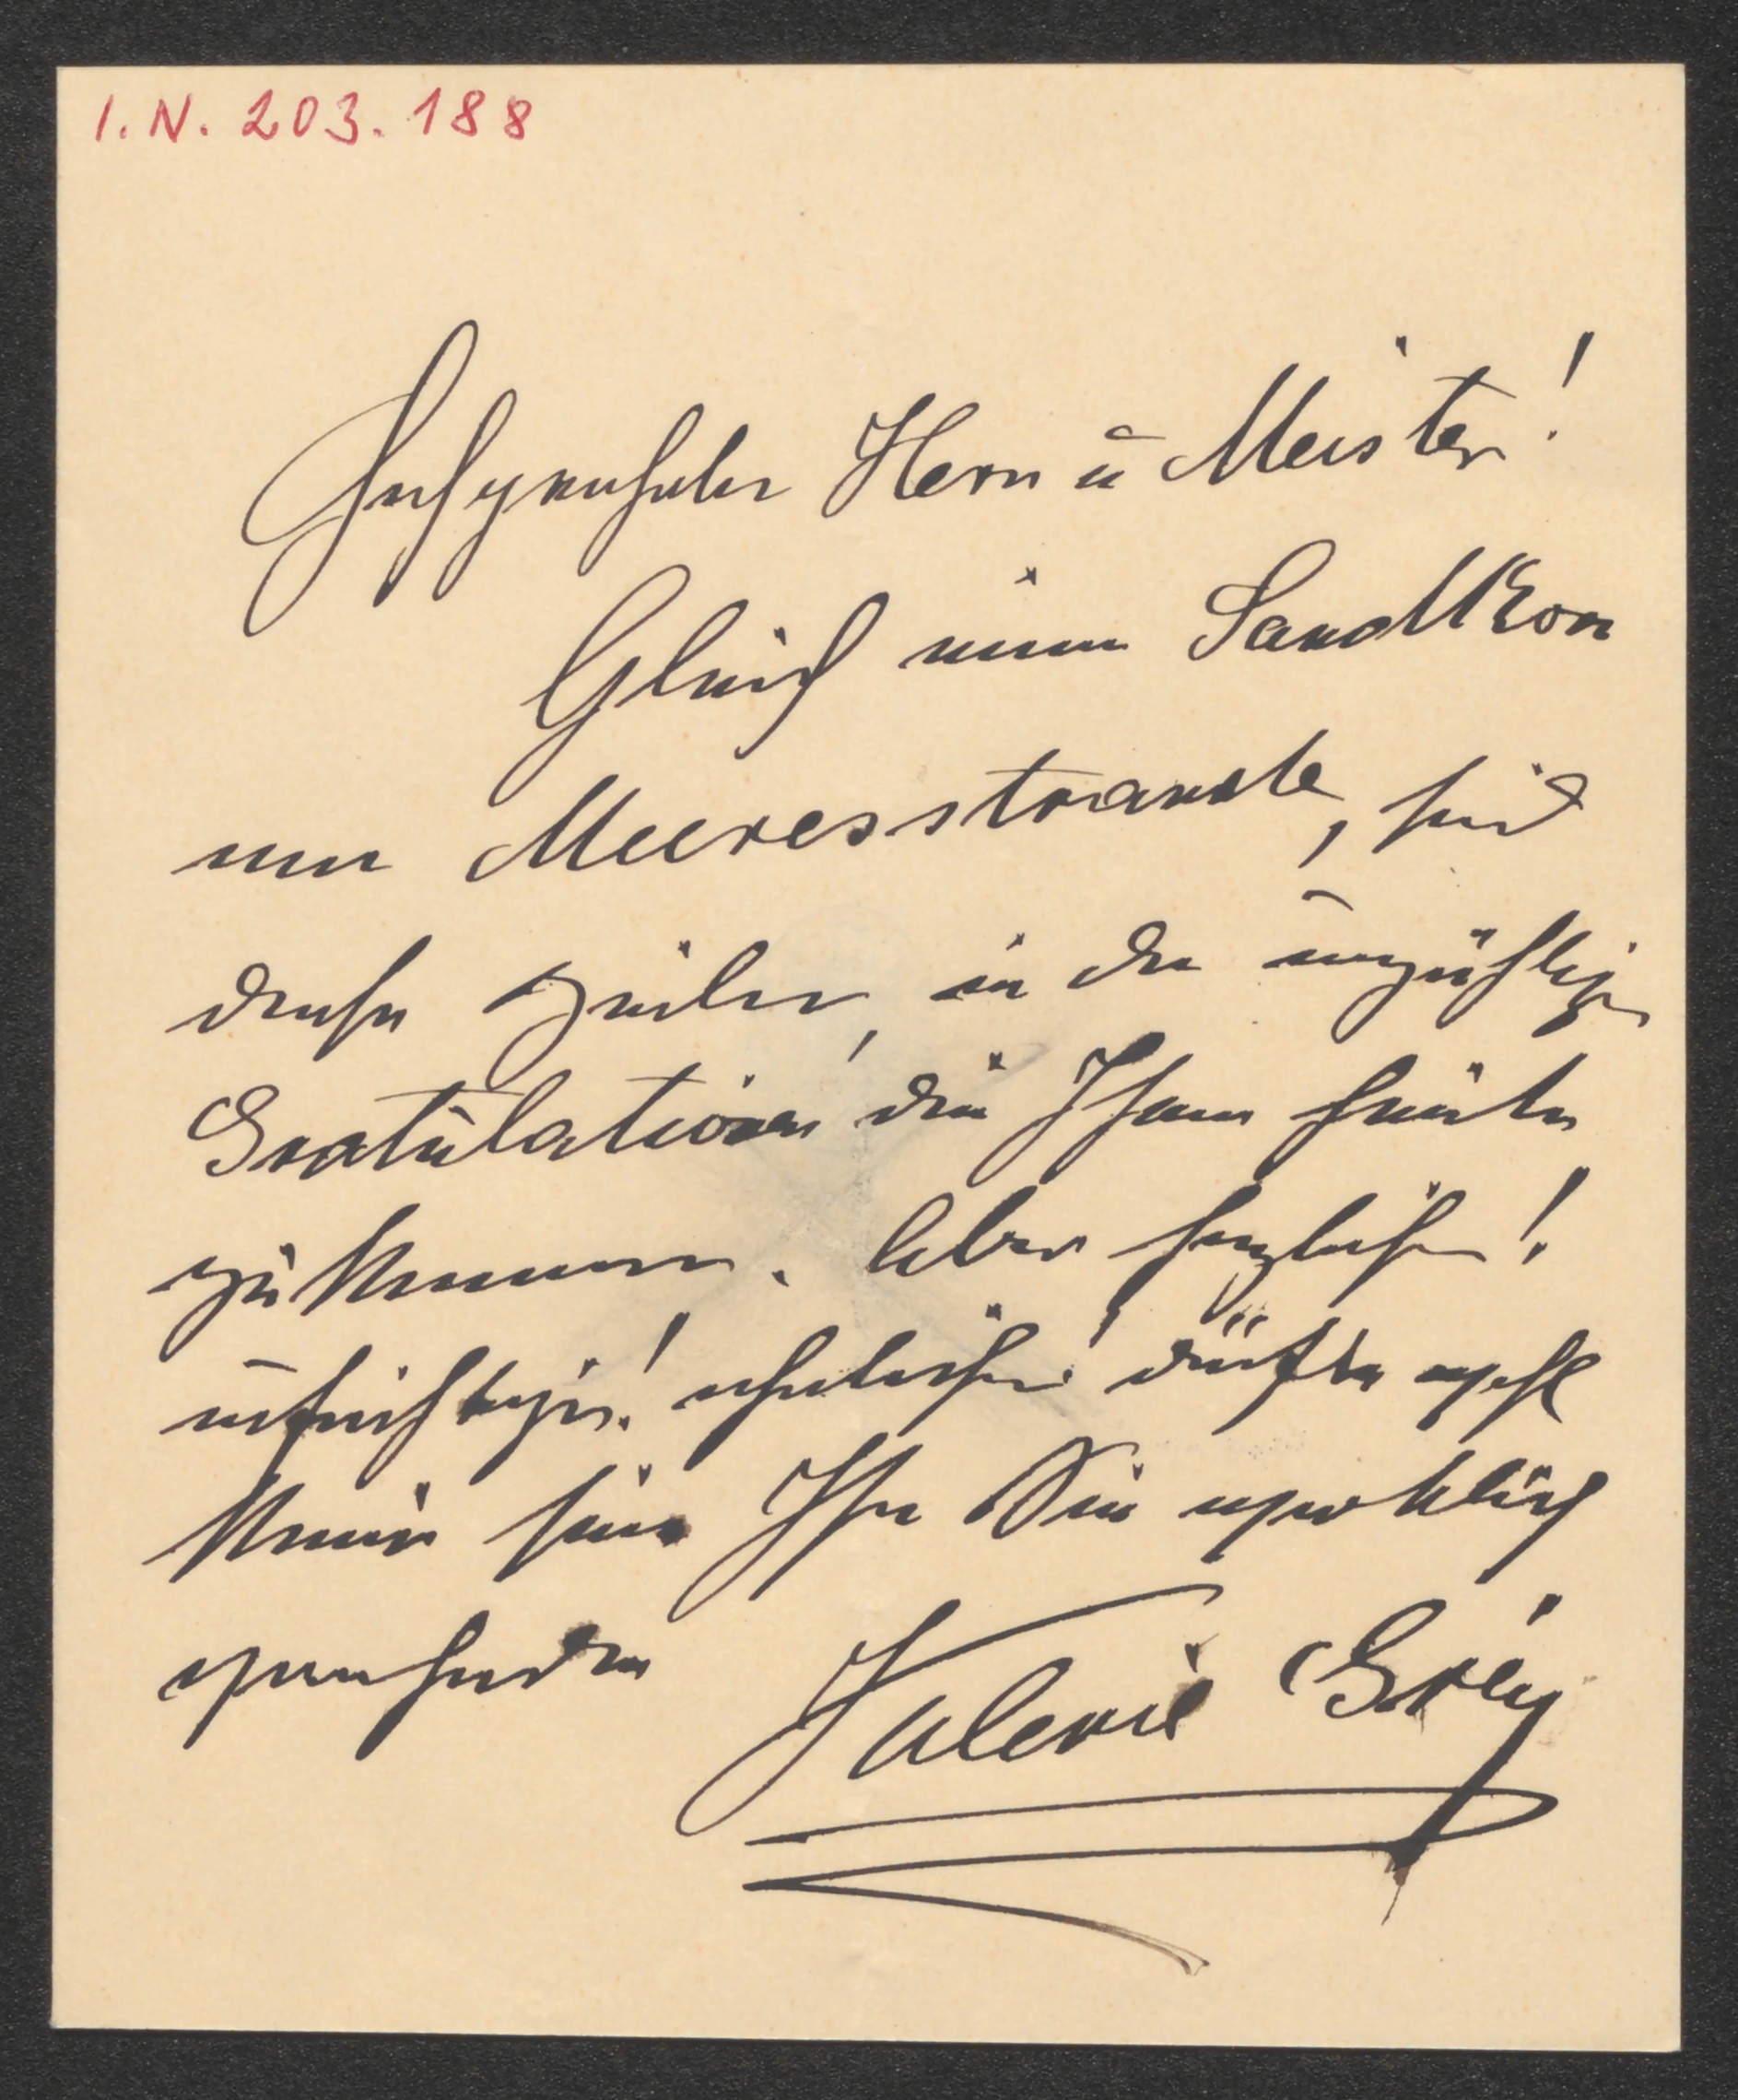 I.N. 203.188
Hochverehrter Herr u Meister!
Gleich einem Sandkorn
am Meeresstrande, sind
diese Zeilen, in den unzähligen
Gratulationen die Ihnen heute
zukommen. Aber herzlicher!
aufrichtiger! ehrlicher! dürfte wohl
keine sein Ihre Sie wirklich
verehrende
Valerie Gréy